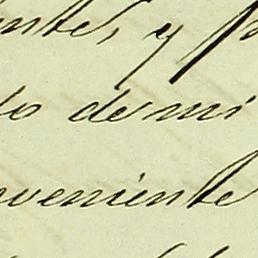 nte, y p
do de mi
nveniente